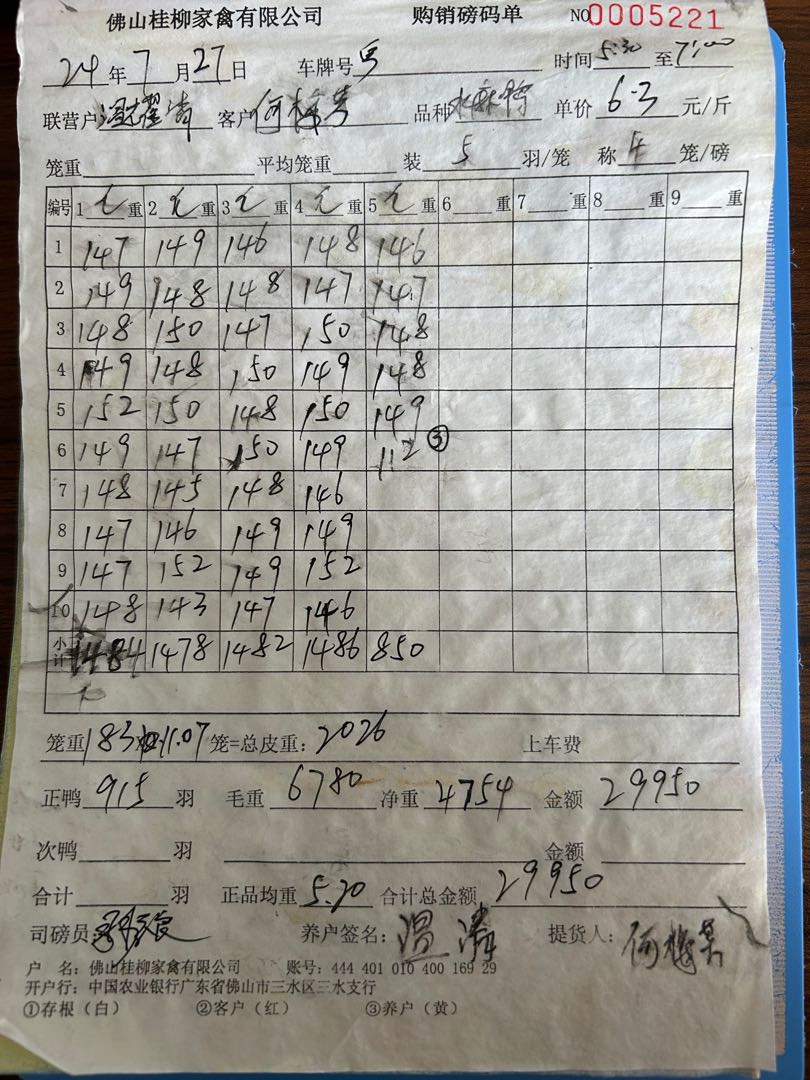 佛山桂柳家禽有限公司 购销磅码单 NO0005221
24年7月27日 车牌号 时间5:30至7:00
联营户温耀涛 客户何梅 品种水麻鸭 单价6.3元/斤
笼重 平均笼重 装5羽/笼 称4笼/磅
编号 1毛重 2毛重 3毛重 4毛重 5毛重 6重 7重 8重 9重
1 147 149 146 148 146
2 149 148 148 147 147
3 148 150 147 150 148
4 149 148 150 149 148
5 152 150 148 150 149
6 149 147 150 149 112 ③
7 148 145 148 146
8 147 146 149 149
9 147 152 149 152
10 148 143 147 146
小计 1484 1478 1482 1486 850
笼重183 11.07笼=总皮重:2026 上车费
正鸭915羽 毛重6780 净重4754 金额29950
次鸭羽 金额
合计羽 正品均重5.20 合计总金额29950
司磅员 养户签名:温涛 提货人:何梅
户 名:佛山桂柳家禽有限公司 账号:444 401 010 400 169 29
开户行:中国农业银行广东省佛山市三水区三水支行
①存根(白) ②客户(红) ③养户(黄)